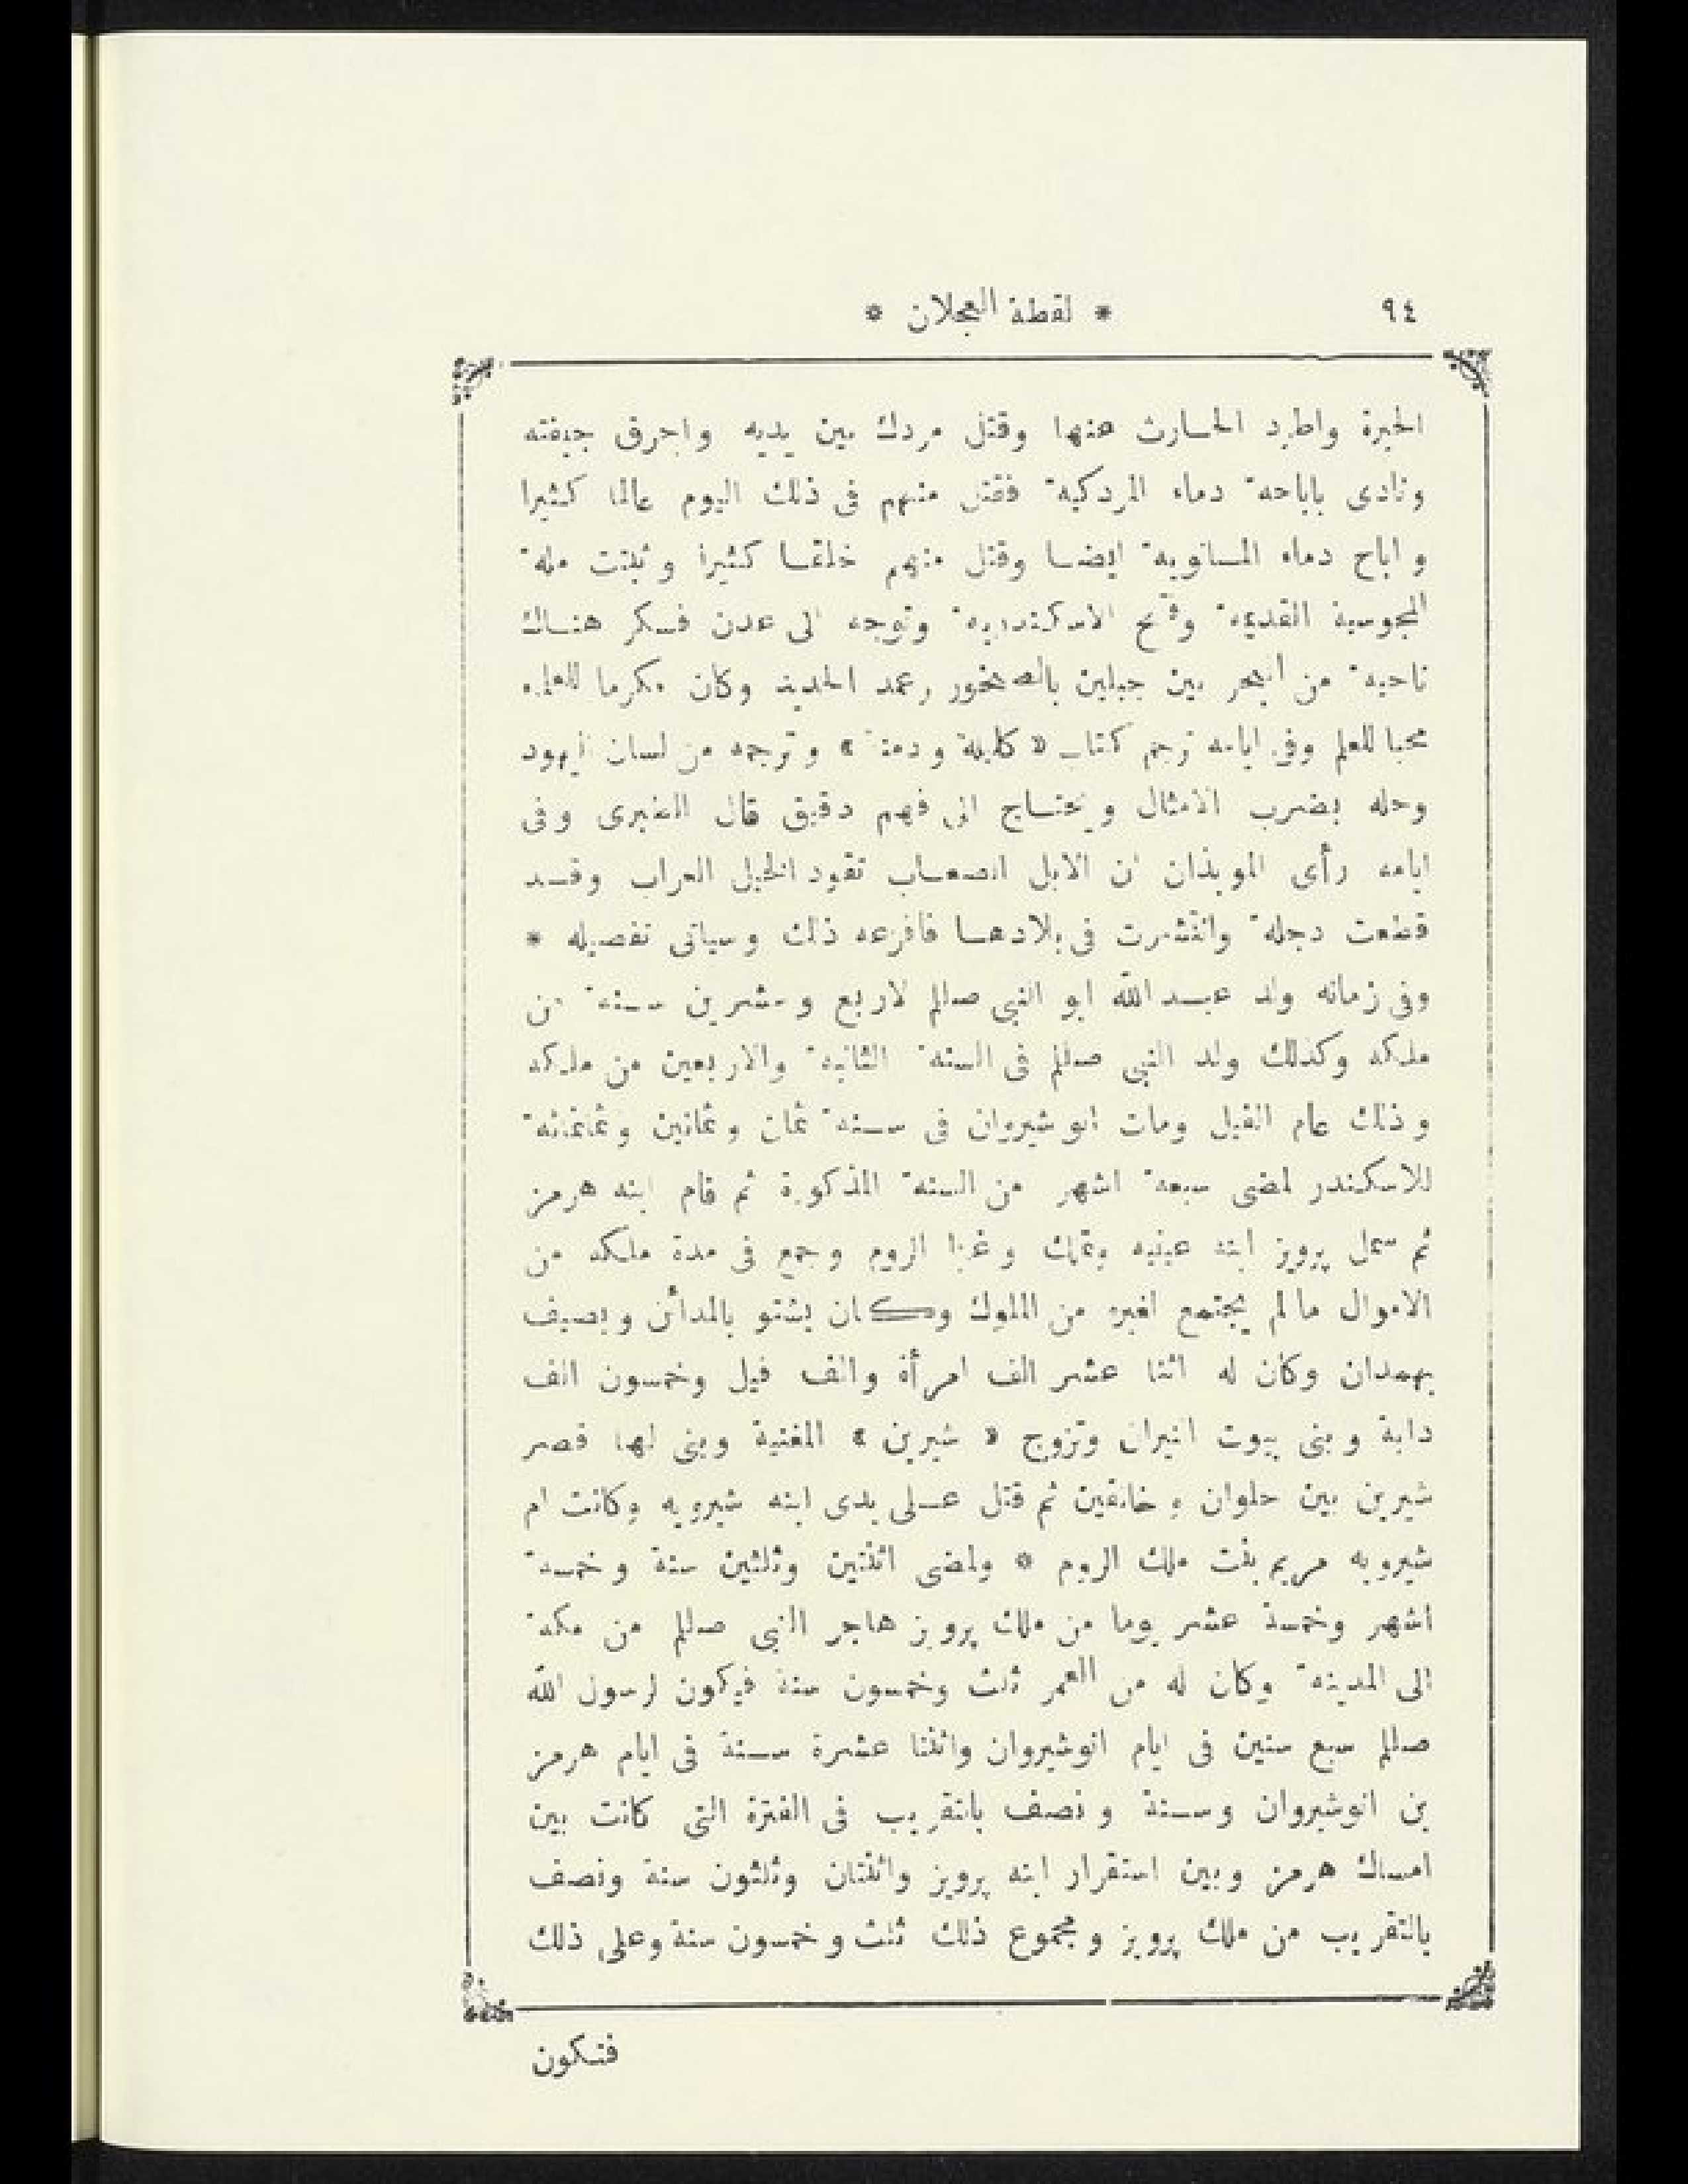 ٩٤ * لقطة العجلان *
الحيرة واطرد الحارث عنها وقتل مردك بين يديه واحرق جيفته
ونادى باباحة دماء المردكية فقتل منهم فى ذلك اليوم عالما كثيرا
و اباح دماء المانوية ايضا وقتل منهم خلقا كثيرا و ثبتت ملة
المجوسية القديمة وفتح الاسكندرية وتوجه الى عدن فسكر هناك
ناحية من البحر بين جبلين بالصخور وعمد الحديد وكان مكرما للعلماء
محبا للعلم وفى ايامه ترجم كتاب « كليلة و دمنة » و ترجمه من لسان اليهود
وحله بضرب الامثال و يحتاج الى فهم دقيق قال الطبرى وفى
ايامه رأى الموبذان ان الابل الصعاب تقود الخيل العراب وقد
قطعت دجلة وانتشرت فى بلادها فافزعه ذلك وسياتى تفصيله *
وفى زمانه ولد عبد الله ابو النبى صللم لاربع وعشرين سنة من
ملكه وكذلك ولد النبى صللم فى السنة الثانية والاربعين من ملكه
و ذلك عام الفيل ومات انوشيروان فى سنة ثمان و ثمانين وثمانمائة
للاسكندر لمضى سبعة اشهر من السنة المذكورة ثم قام ابنه هرمز
ثم سمل پرويز ابنه عينيه وتملك وغزا الروم وجمع فى مدة ملكه من
الاموال ما لم يجتمع لغيره من الملوك وكان يشتو بالمدائن ويصيف
بهمدان وكان له اثنا عشر الف امرأة والف فيل وخمسون الف
دابة و بنى بيوت النيران وتزوج « شيرين » المغنية وبنى لها قصر
شيرين بين حلوان و خانقين ثم قتل على يدى ابنه شيرويه وكانت ام
شيرويه مريم بنت ملك الروم * ولمضى اثنتين وثلثين سنة وخمسة
اشهر وخمسة عشر يوما من ملك پرويز هاجر النبى صللم من مكة
الى المدينة وكان له من العمر ثلث وخمسون سنة فيكون لرسول الله
صللم سبع سنين فى ايام انوشيروان واثنتا عشرة سنة فى ايام هرمز
بن انوشيروان وسنة و نصف بالتقريب فى الفترة التى كانت بين
امساك هرمز وبين استقرار ابنه پرويز واثنتان وثلثون سنة ونصف
بالتقريب من ملك پرويز و مجموع ذلك ثلث و خمسون سنة وعلى ذلك
فتكون